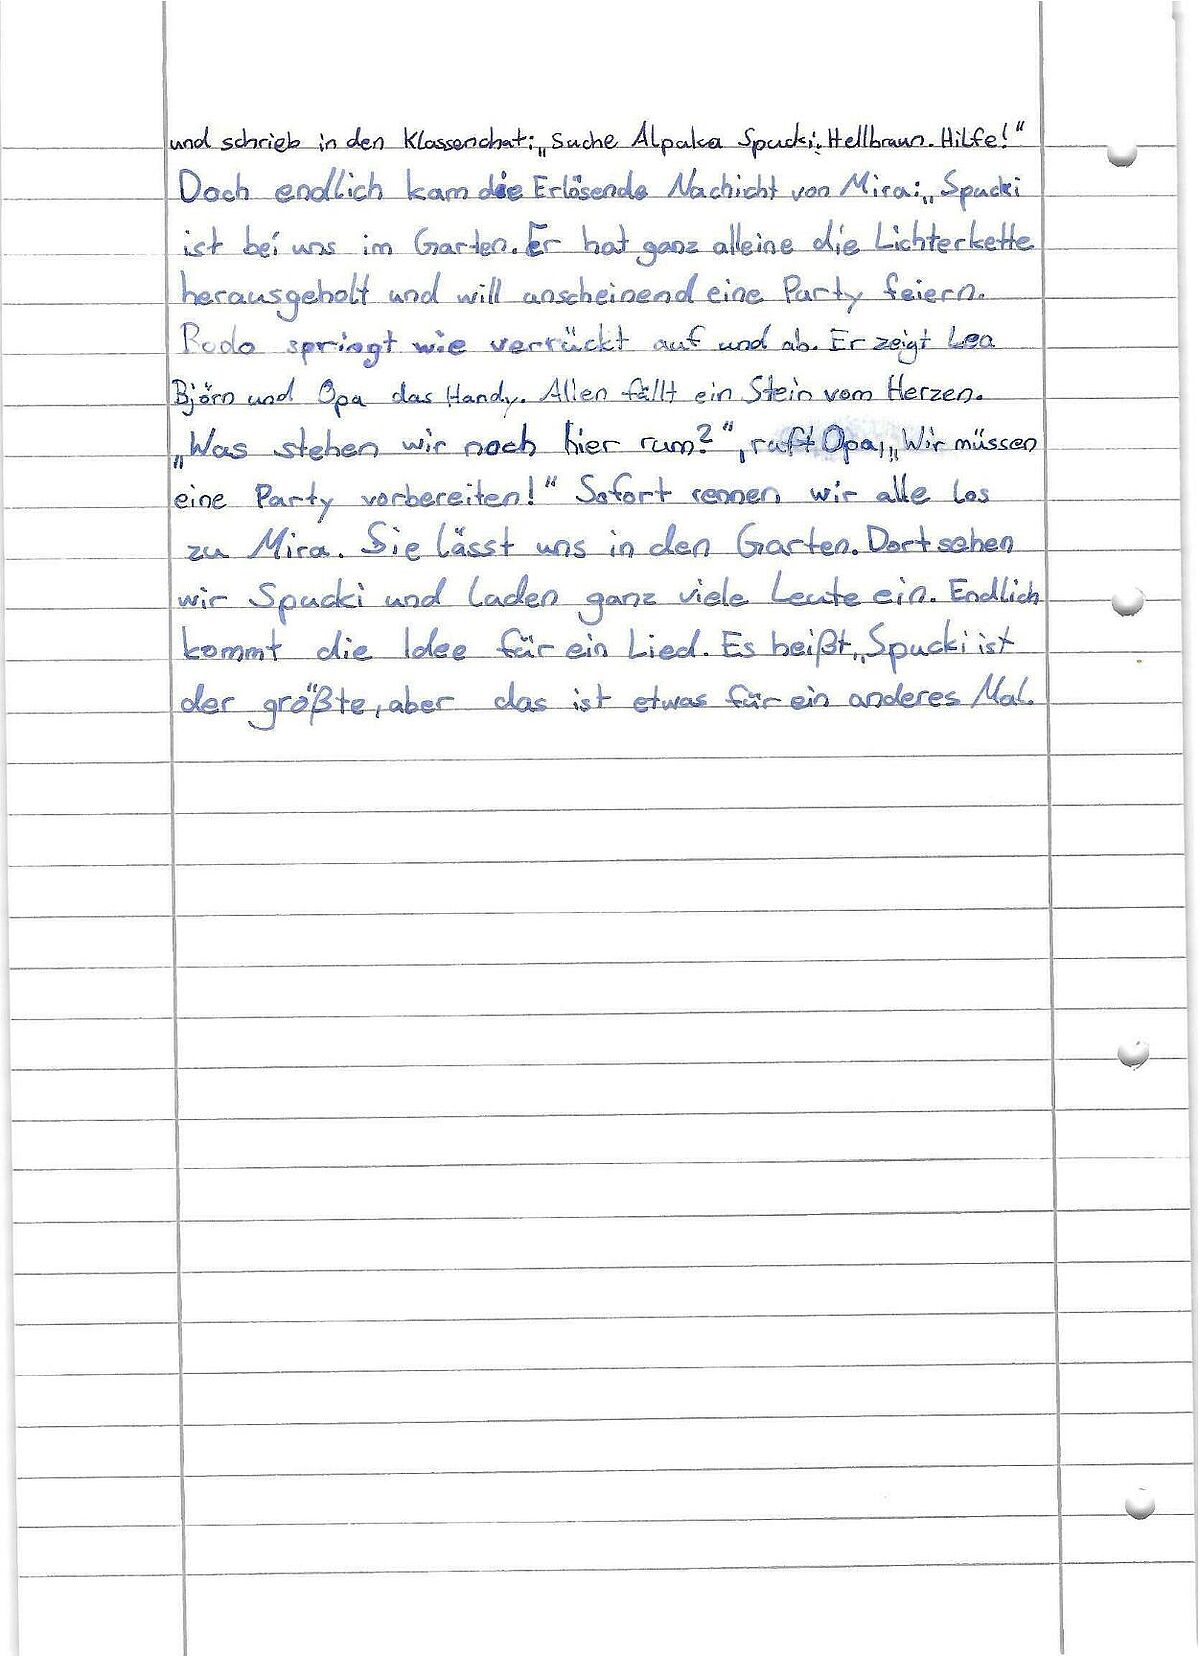 und schrieb in den Klassenchat: „Suche Alpaka Spucki. Hellbraun. Hilfe!"
Doch endlich kam die Erlösende Nachicht von Mira: „Spucki
ist bei uns im Garten. Er hat ganz alleine die Lichterkette
herausgeholt und will anscheinend eine Party feiern.
Bodo springt wie verrückt auf und ab. Er zeigt Lea
Björn und Opa das Handy. Allen fällt ein Stein vom Herzen.
„Was stehen wir noch hier rum?", ruft Opa, „Wir müssen
eine Party vorbereiten!" Sofort rennen wir alle los
zu Mira. Sie lässt uns in den Garten. Dort sehen
wir Spucki und laden ganz viele Leute ein. Endlich
kommt die Idee für ein Lied. Es heißt „Spucki ist
der größte, aber das ist etwas für ein anderes Mal.